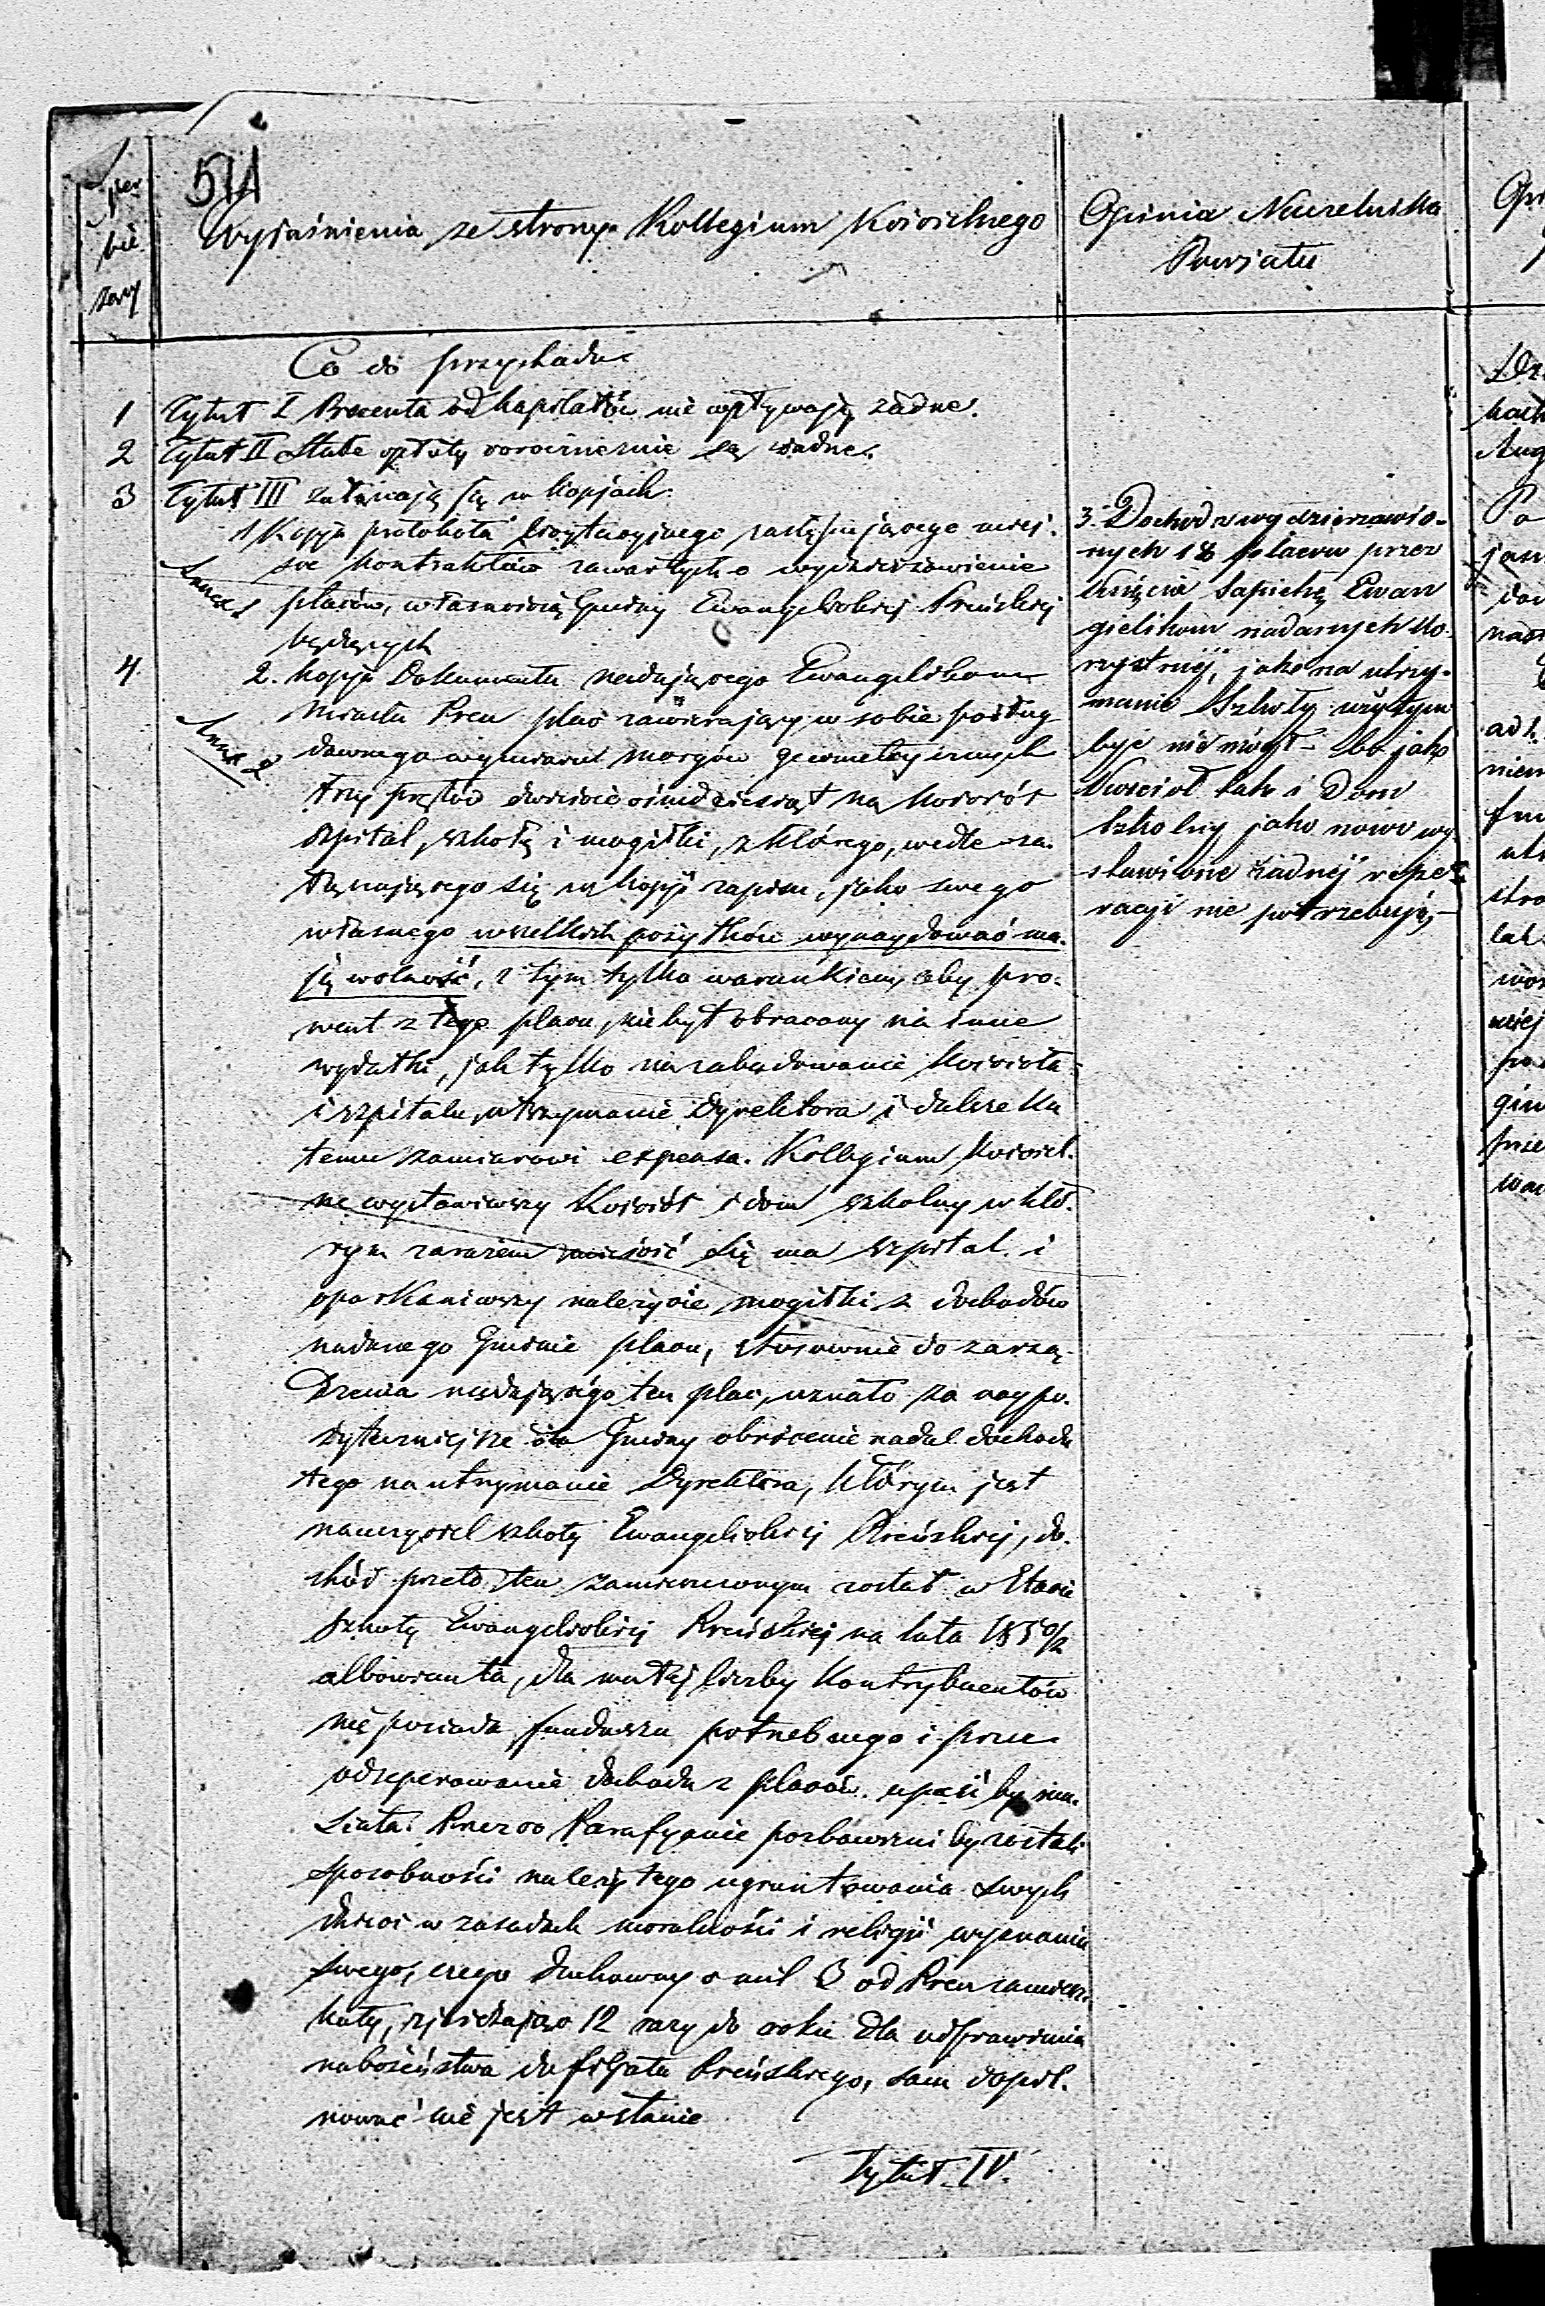 514
Wyjaśnienia ze strony Kollegium Kościelnego
Opinia Naczelnika
Powiatu
Co do przychodu
1 Tytuł I Procenta od kapitałów nie wpływają żadne.
2 Tytuł II Stałe opłaty coroczne nie są żadne.
3 Tytuł III załączają się w kopjach
1/ Kopja protokołu licytacyjnego zastępującego miej-
sce kontraktów zawartych o wydzierżawienie
Annex 1 placów, własnością Gminy Ewangelickiej Preńskiej
będących
4 2. Kopja Dokumentu nadającego Ewangelikom
miasta Pren plac zawierający w sobie podług
Annex 2
dawnego wymiaru morgów geometrycznych
trzy prętów dwieście ośmdziesiąt na kościół
szpital, szkołę i mogiłki, z którego, wedle za-
łączającego się w kopji zapisu, jako swego
własnego wszelkich pożytków wynaydować ma-
ją wolność, z tym tylko warunkiem, aby pro-
went z tego placu, nie był obracany na inne
wydatki, jak tylko na zabudowanie kościoła
i szpitalu, utrzymanie Dyrektora i dalsze ku
temu zamiarowi expensa. Kollegium Kościel-
ne wystawiwszy Kościół i dom szkolny w któ-
rym zarazem mieścić się ma szpital i
oparkaniwszy należycie mogiłki z dochodów
nadanego Gminie placu, stosownie do zarzą-
dzenia nadającego ten plac, uznało za naypo-
żyteczniejsze dla Gminy obrócenie nadal dochodu
tego na utrzymanie Dyrektora, którym jest
nauczyciel szkoły Ewangelickiej Preńskiej, do-
chód przeto ten zamieszczonym został w Etacie
szkoły Ewangelickiej Preńskiej na lata 185 0/2
albowiem ta, dla małej liczby kontrybuentów
nie posiada funduszu potrzebnego i przez
odseperowanie dochodu z placów upaść by mu-
siała. Przezco Parafyanie pozbawieni by zostali
sposobności należytego ugruntowania swych
dzieci w zasadach moralności i religii wyznania
swego, czego duchowny o mil 3 od Pren zamiesz-
kały, zjeżdżając 12 razy do roku dla odprawienia
nabożeństwa do filjału Preńskiego, sam dopil-
nować nie jest w stanie
Tytuł IV.
3. Dochód z wydzierżawio-
nych 18 placów przez
Księcia Sapiehę Ewan
gielikom nadanych ko-
rzystniej, jako na utrzy-
manie Szkoły użytym
być nie może - bo jako
Kościół tak i Dom
szkolny jako nowo wy-
stawione żadnej repe-
racji nie potrzebują,